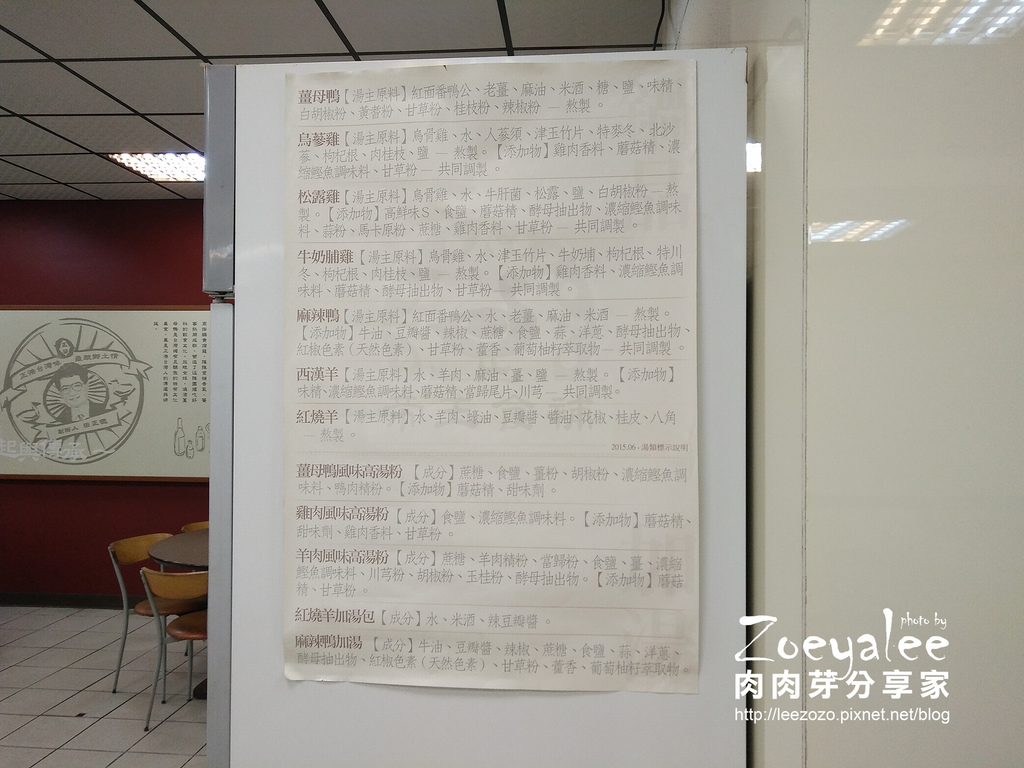 薑母鴨【湯主原料】紅面番鴨公、老薑、麻油、米酒、糖、鹽、味精、
白胡椒粉、黃耆粉、甘草粉、桂枝粉、辣椒粉 — 熬製。
烏蔘雞【湯主原料】烏骨雞、水、人蔘須、津玉竹片、特麥冬、北沙
蔘、枸杞根、肉桂枝、鹽 — 熬製。【添加物】雞肉香料、蘑菇精、濃
縮鰹魚調味料、甘草粉 — 共同調製。
松露雞【湯主原料】烏骨雞、水、牛肝菌、松露、鹽、白胡椒粉 — 熬
製。【添加物】高鮮味S、食鹽、蘑菇精、酵母抽出物、濃縮鰹魚調味
料、蒜粉、馬卡原粉、蔗糖、雞肉香料、甘草粉 — 共同調製。
牛奶脯雞【湯主原料】烏骨雞、水、津玉竹片、牛奶埔、枸杞根、特川
冬、枸杞根、肉桂枝、鹽 — 熬製。【添加物】雞肉香料、濃縮鰹魚調
味料、蘑菇精、酵母抽出物、甘草粉 — 共同調製。
麻辣鴨【湯主原料】紅面番鴨公、水、老薑、麻油、米酒 — 熬製。
【添加物】牛油、豆瓣醬、辣椒、蔗糖、食鹽、蒜、洋蔥、酵母抽出物、
紅椒色素（天然色素）、甘草粉、藿香、葡萄柚籽萃取物 — 共同調製。
西漢羊【湯主原料】水、羊肉、麻油、薑、鹽 — 熬製。【添加物】
味精、濃縮鰹魚調味料、蘑菇精、當歸尾片、川芎 — 共同調製。
紅燒羊【湯主原料】水、羊肉、蠔油、豆瓣醬、醬油、花椒、桂皮、八角
— 熬製。
2015.06，湯類標示說明
薑母鴨風味高湯粉【成分】蔗糖、食鹽、薑粉、胡椒粉、濃縮鰹魚調
味料、鴨肉精粉。【添加物】蘑菇精、甜味劑。
雞肉風味高湯粉【成分】食鹽、濃縮鰹魚調味料。【添加物】蘑菇精、
甜味劑、雞肉香料、甘草粉。
羊肉風味高湯粉【成分】蔗糖、羊肉精粉、當歸粉、食鹽、薑、濃縮
鰹魚調味料、川芎粉、胡椒粉、玉桂粉、酵母抽出物。【添加物】蘑菇
精、甘草粉。
紅燒羊加湯包【成分】水、米酒、辣豆瓣醬。
麻辣鴨加湯【成分】牛油、豆瓣醬、辣椒、蔗糖、食鹽、蒜、洋蔥、
酵母抽出物、紅椒色素（天然色素）、甘草粉、藿香、葡萄柚籽萃取物。
正港台灣味
起與傳承
photo by
Zoeyalee
肉肉芽分享家
http://leezozo.pixnet.net/blog